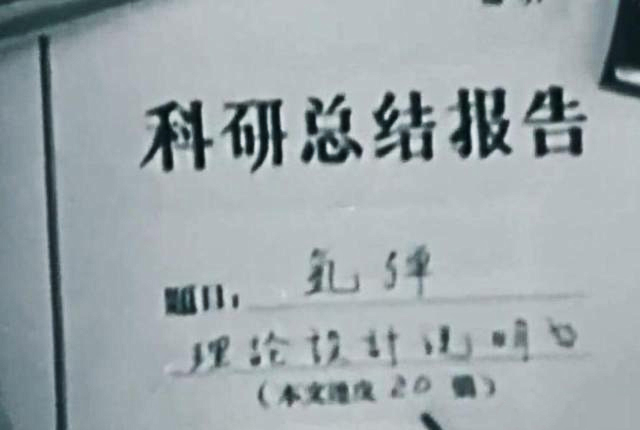 科研总结报告
题目：氢弹
理论设计说明书
（本文 20 ）